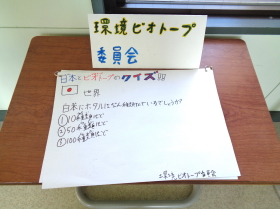 環境ビオトープ
委員会
日本とビオトープのクイズ
世界
日本にホタルはなん種類いるでしょうか?
①10種類ほど
②50種類ほど
③100種類ほど
環境ビオトープ委員会